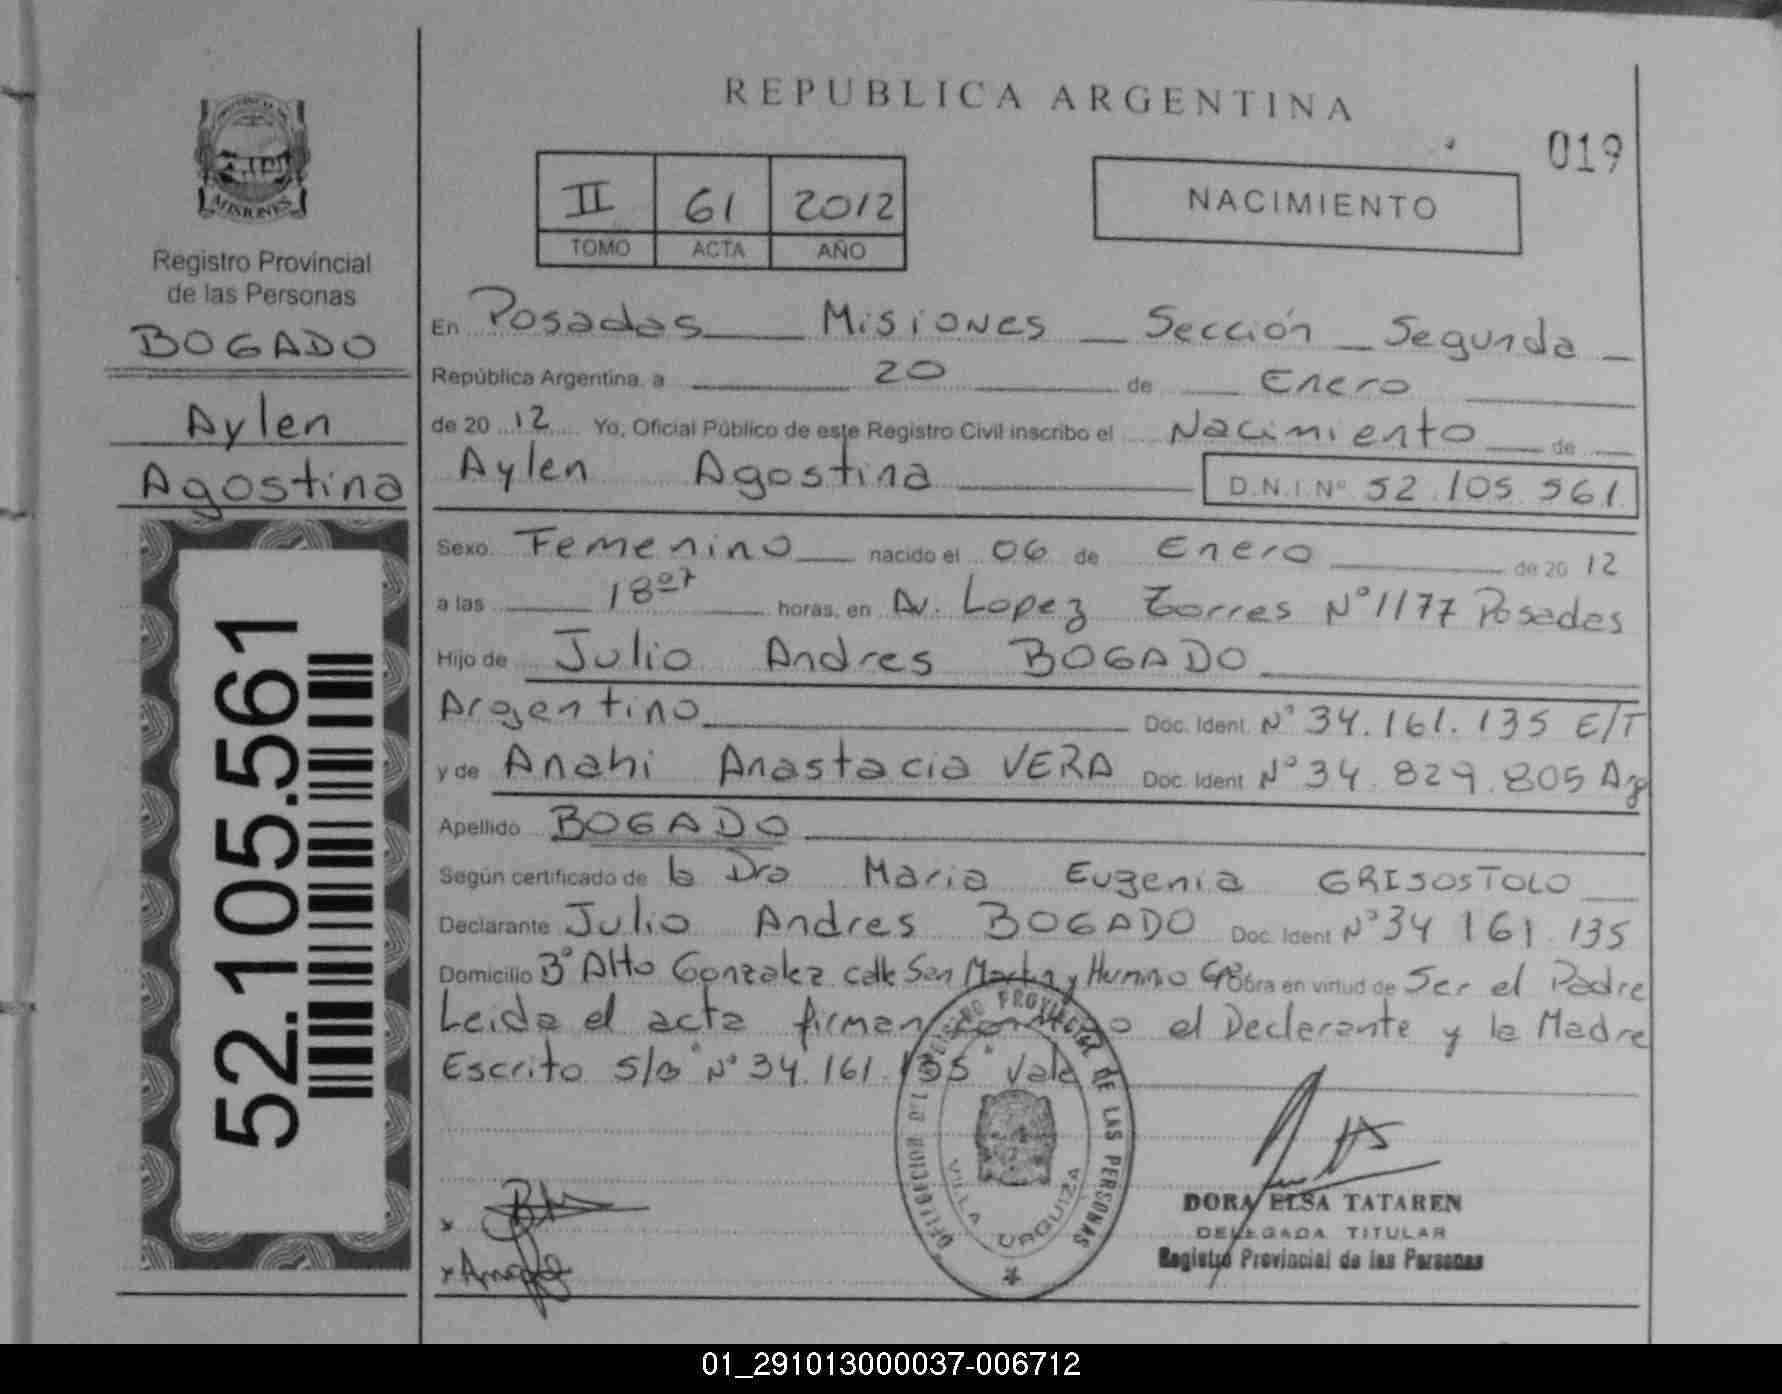 REPUBLICA ARGENTINA
019
II 61 2012
TOMO ACTA AÑO
NACIMIENTO
MISIONES
Registro Provincial
de las Personas
BOGADO
Aylen
Agostina
52.105.561
En Posadas Misiones Sección Segunda
República Argentina, a 20 de Enero
de 20 12 Yo, Oficial Público de este Registro Civil inscribo el Nacimiento de
Aylen Agostina D.N.I. Nº 52.105.561
Sexo Femenino nacido el 06 de Enero de 20 12
a las 18 07 horas, en Av. Lopez Torres Nº 1177 Posadas
Hijo de Julio Andres BOGADO
Argentino Doc. Ident. Nº 34.161.135 E/T
y de Anahi Anastacia VERA Doc. Ident Nº 34.829.805 Arg
Apellido BOGADO
Según certificado de la Dra Maria Eugenia GRISOSTOLO
Declarante Julio Andres BOGADO Doc. Ident Nº 34 161.135
Domicilio Bº Alto Gonzalez calle San Martin y obra en virtud de Ser el Padre
Leida el acta firman conmigo el Declarante y la Madre
Escrito S/B "Nº 34.161.135" Vale
REGISTRO PROVINCIAL DE LAS PERSONAS
VILLA URQUIZA
DORA ELSA TATAREN
DELEGADA TITULAR
Registro Provincial de las Personas
01_291013000037-006712